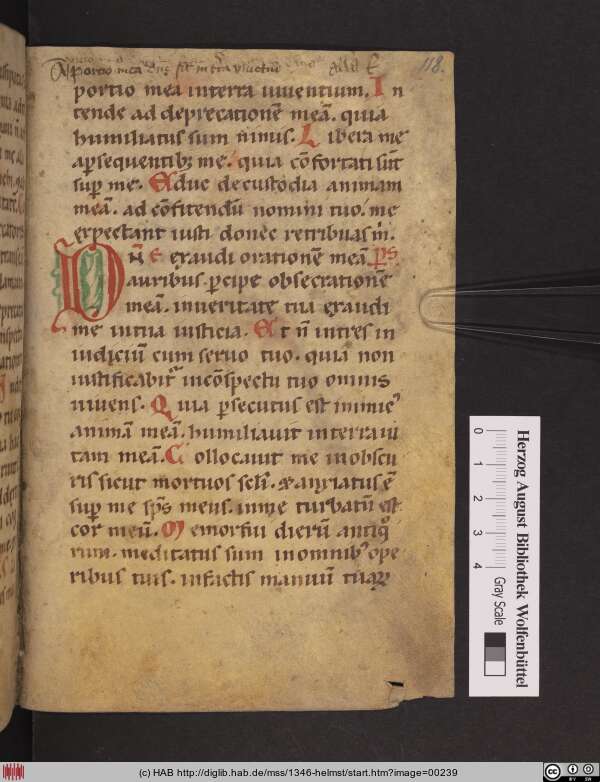 portio mea in terra uiuentium. In
tende ad deprecationē meā. quia
humiliatus sum nimis. Libera me
a ꝑsequentibꝫ me. quia cōfortati sūt
suꝑ me. Educ de custodia animam
meā. ad cōfitendū nomini tuo. me
expectant iusti donec retribuas m̄.
Dn̄e exaudi orationē meā.
auribus ꝑcipe obsecrationē
meā. in ueritate tua exaudi
me in tua iusticia. Et n̄ intres in
iudiciū cum seruo tuo. quia non
iustificabit᷑ in cōspectu tuo omnis
uiuens. Quia ꝑsecutus est inimic᷒
animā meā. humiliauit in terra ui
tam meā. Collocauit me in obscu
ris sicut mortuos sc̄li. & anxiatus ē
suꝑ me sp̄s meus. in me turbatū est
cor meū. Memor fui dierū antiq̊
rum. meditatus sum in omnib᷒ ope
ribus tuis. in factis manuū tuaꝝ
118.
0 1 2 3 4
Gray Scale
Herzog August Bibliothek Wolfenbüttel
(c) HAB http://diglib.hab.de/mss/1346-helmst/start.htm?image=00239